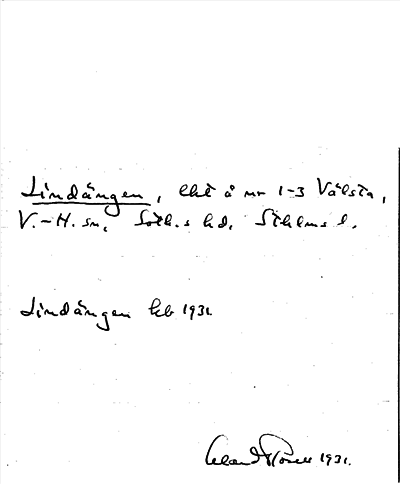 Lindängen, lht å nr 1-3 Välsta,
V.-H. sn, Soth.s hd, Sthlms l.
Lindängen kb 1931
1931.